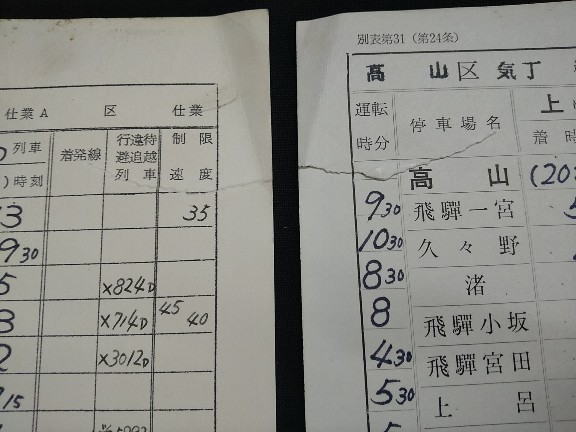 仕業A 区 仕業
列車 着発線 行違待 制限
)時刻 避追越 速度
列車
3 35
930
5 ×824D
8 ×714D 45 40
2 ×3012D
15
別表第31（第24条）
高山区 気丁
運転 停車場名 上
時分 着時
高山 (20
930 飛驒一宮
1030 久々野
830 渚
8 飛驒小坂
430 飛驒宮田
530 上呂